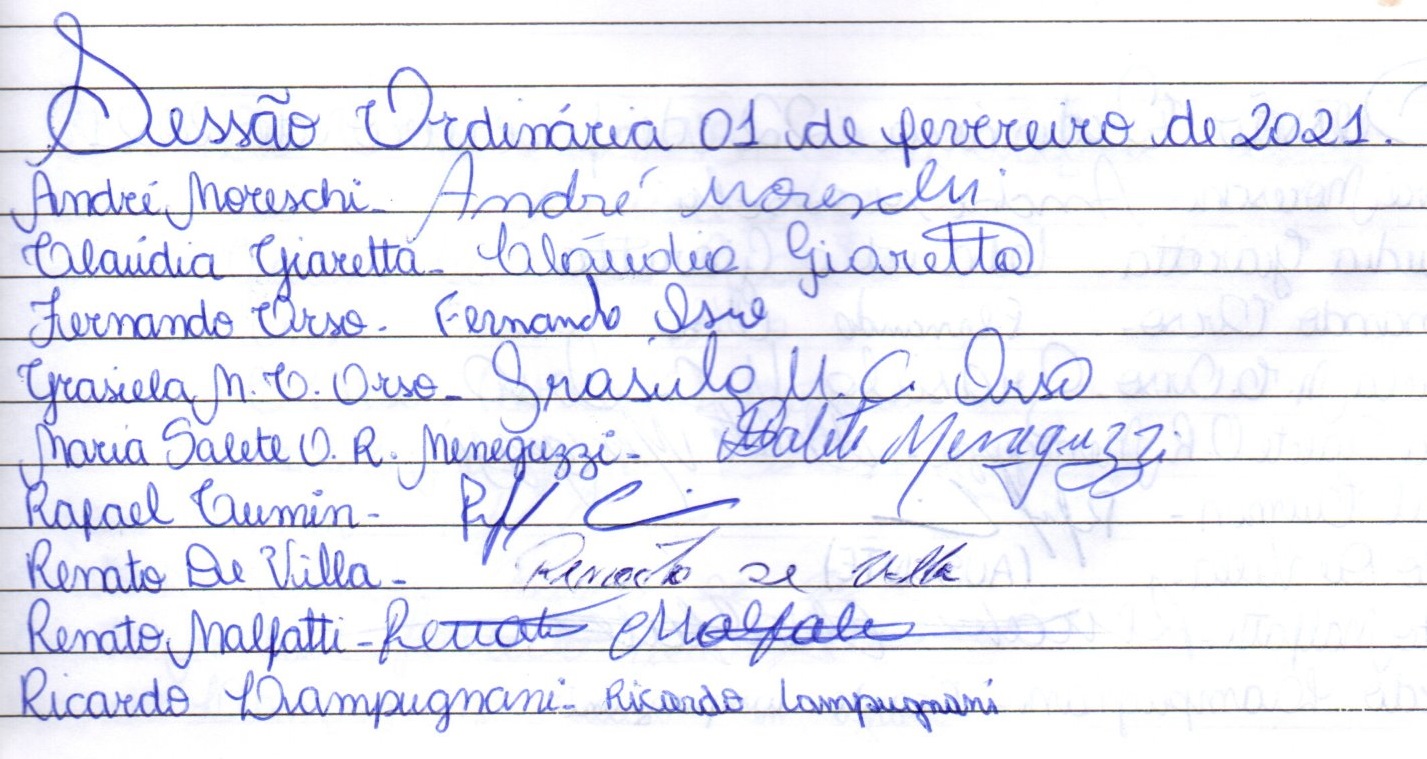 Sessão Ordinária 01 de fevereiro de 2021.
André Moreschi - André Moreschi
Claúdia Giaretta - Cláudia Giaretta
Fernando Orso - Fernando Orso
Grasiela M. C. Orso - Grasiela M. C. Orso
Maria Salete O. R. Meneguzzi - Salete Meneguzzi
Rafael Cumin -
Renato De Villa - Renato De Villa
Renato Malfatti - Renato Malfatti
Ricardo Lampugnani - Ricardo Lampugnani